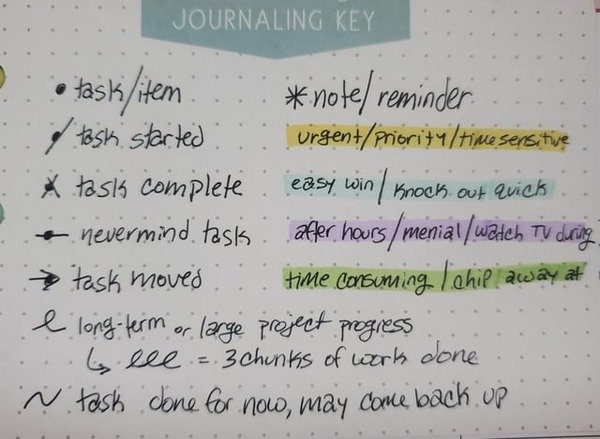 JOURNALING KEY
• task/item
* note/reminder
task started
urgent/priority/time sensitive
x task complete
easy win/knock out quick
nevermind task
after hours/menial/watch TV during
→ task moved
time consuming/chip away at
l long-term or large project progress
↳ lll = 3 chunks of work done
~ task done for now, may come back up